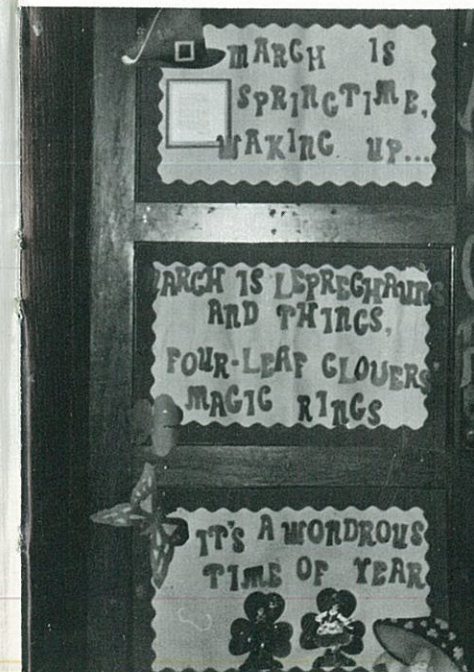 MARCH IS
SPRINGTIME,
WAKING UP...
MARCH IS LEPRECHAUNS
AND THINGS,
FOUR-LEAF CLOVERS
MAGIC RINGS
IT'S A WONDROUS
TIME OF YEAR